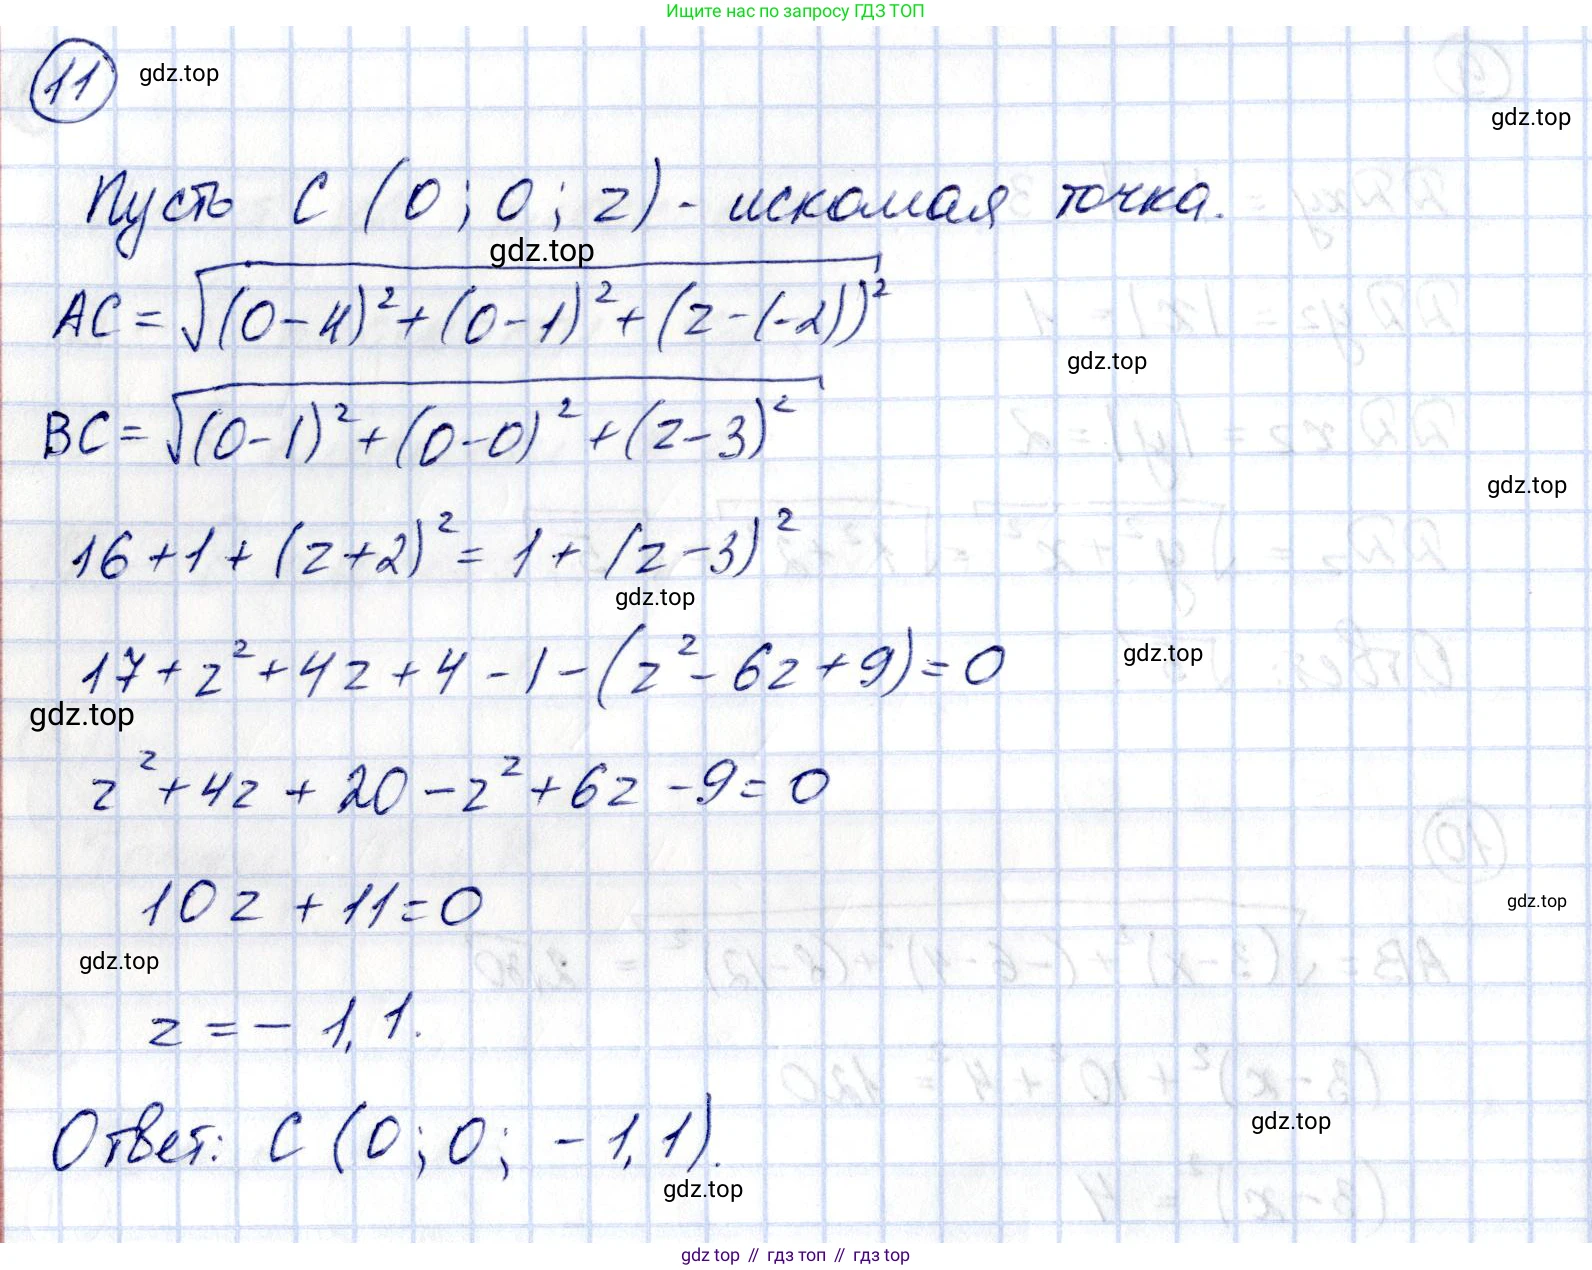 Ищите нас по запросу ГДЗ ТОП
11 gdz.top
gdz.top
Пусть C (0; 0; z) - искомая точка.
gdz.top
AC = √((0-4)²+(0-1)²+(z-(-2))²)
gdz.top
BC = √((0-1)²+(0-0)²+(z-3)²)
gdz.top
16+1+(z+2)² = 1+(z-3)²
gdz.top
17+z²+4z+4-1-(z²-6z+9)=0
gdz.top
gdz.top
z²+4z+20-z²+6z-9=0
10z+11=0
gdz.top
gdz.top
z=-1,1.
Ответ: C (0; 0; -1,1).
gdz.top
gdz.top
gdz top // гдз топ // гдз top